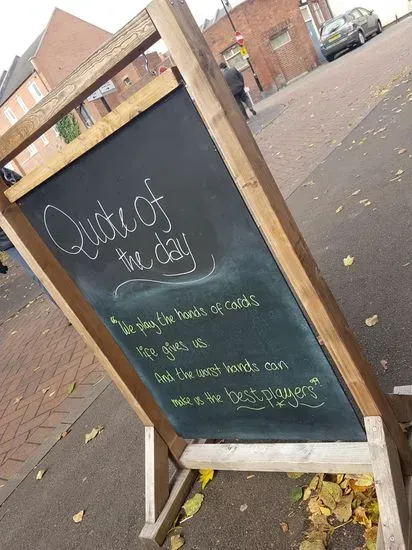 Quote of
the day
"We play the hands of cards
life gives us
And the worst hands can
make us the best players"